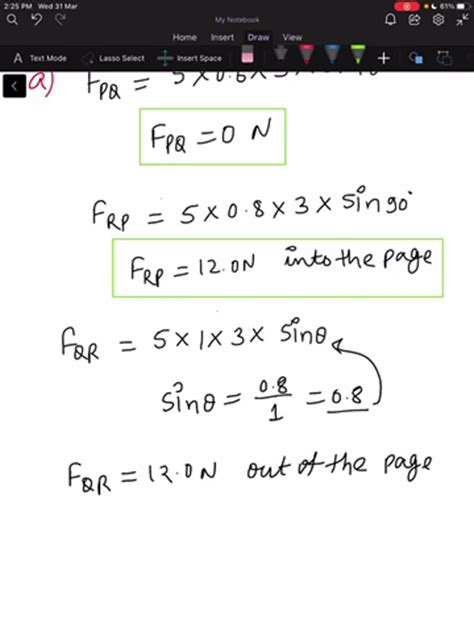 2:25 PM Wed 31 Mar
61%
My Notebook
Home Insert Draw View
Text Mode Lasso Select Insert Space
a) F_PQ = 5 × 0.6 ×
F_PQ = 0 N
F_RP = 5 × 0.8 × 3 × Sin 90°
F_RP = 12.0N into the page
F_QR = 5 × 1 × 3 × Sinθ
Sinθ = 0.8/1 = 0.8
F_QR = 12.0N out of the page